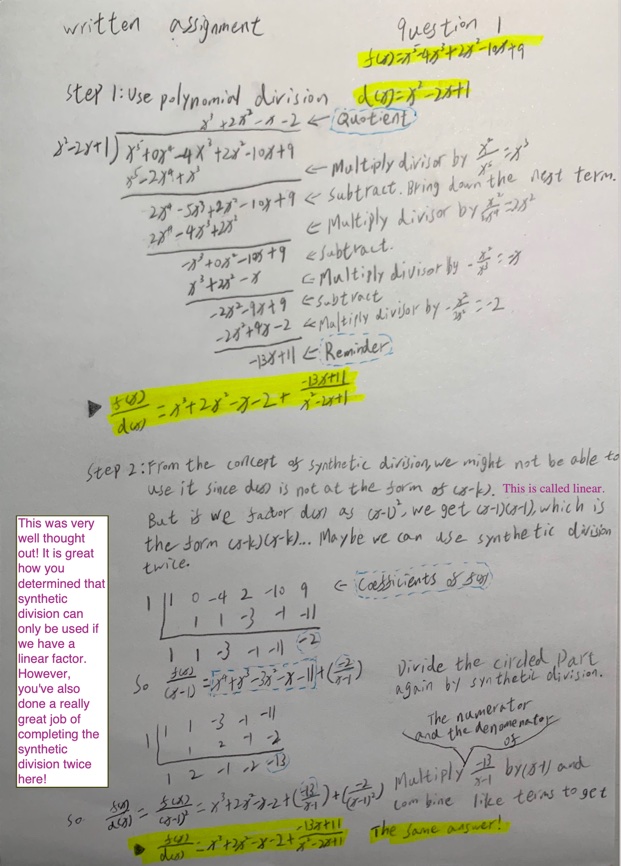 written assignment
Question 1
f(x)=x⁵-4x³+2x²-10x+9
d(x)=x²-2x+1
Step 1: Use polynomial division
x³+2x²-x-2 ← Quotient
x²-2x+1)x⁵+0x⁴-4x³+2x²-10x+9
x⁵-2x⁴+x³ ← Multiply divisor by =x³
2x⁴-5x³+2x²-10x+9 ← Subtract. Bring down the next term.
2x⁴-4x³+2x² ← Multiply divisor by =2x²
-x³+0x²-10x+9 ← Subtract.
x³+2x²-x ← Multiply divisor by =-x
-2x²-9x+9 ← Subtract
-2x²+4x-2 ← Multiply divisor by =-2
-13x+11 ← Reminder
f(x)/d(x) = x³+2x²-x-2+ (-13x+11)/(x²-2x+1)
Step 2: From the concept of synthetic division, we might not be able to
use it since d(x) is not at the form of (x-k). This is called linear.
But if we factor d(x) as (x-1)², we get (x-1)(x-1), which is
the form (x-k)(x-k)... Maybe we can use synthetic division
twice.
This was very
well thought
out! It is great
how you
determined that
synthetic
division can
only be used if
we have a
linear factor.
However,
you've also
done a really
great job of
completing the
synthetic
division twice
here!
1 | 1 0 -4 2 -10 9 ← Coefficients of f(x)
1 1 -3 -1 -11
1 1 -3 -1 -11 -2
So f(x)/(x-1) = x⁴+x³-3x²-x-11+(-2/x-1)
Divide the circled Part
again by synthetic division.
1 | 1 1 -3 -1 -11
1 2 -1 -2
1 2 -1 -2 -13
The numerator
and the denomenator
of
So f(x)/d(x) = f(x)/(x-1)² = x³+2x²-x-2+(-13/x-1)+(-2/(x-1)²)
Multiply -13/x-1 by (x-1) and
combine like terms to get
f(x)/d(x) = x³+2x²-x-2+ (-13x+11)/(x²-2x+1)
The same answer!